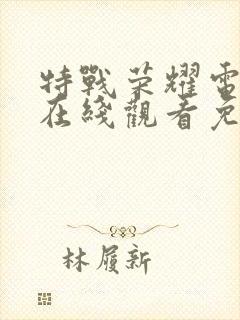 特戰荣耀電
在綫觀看免
林履新